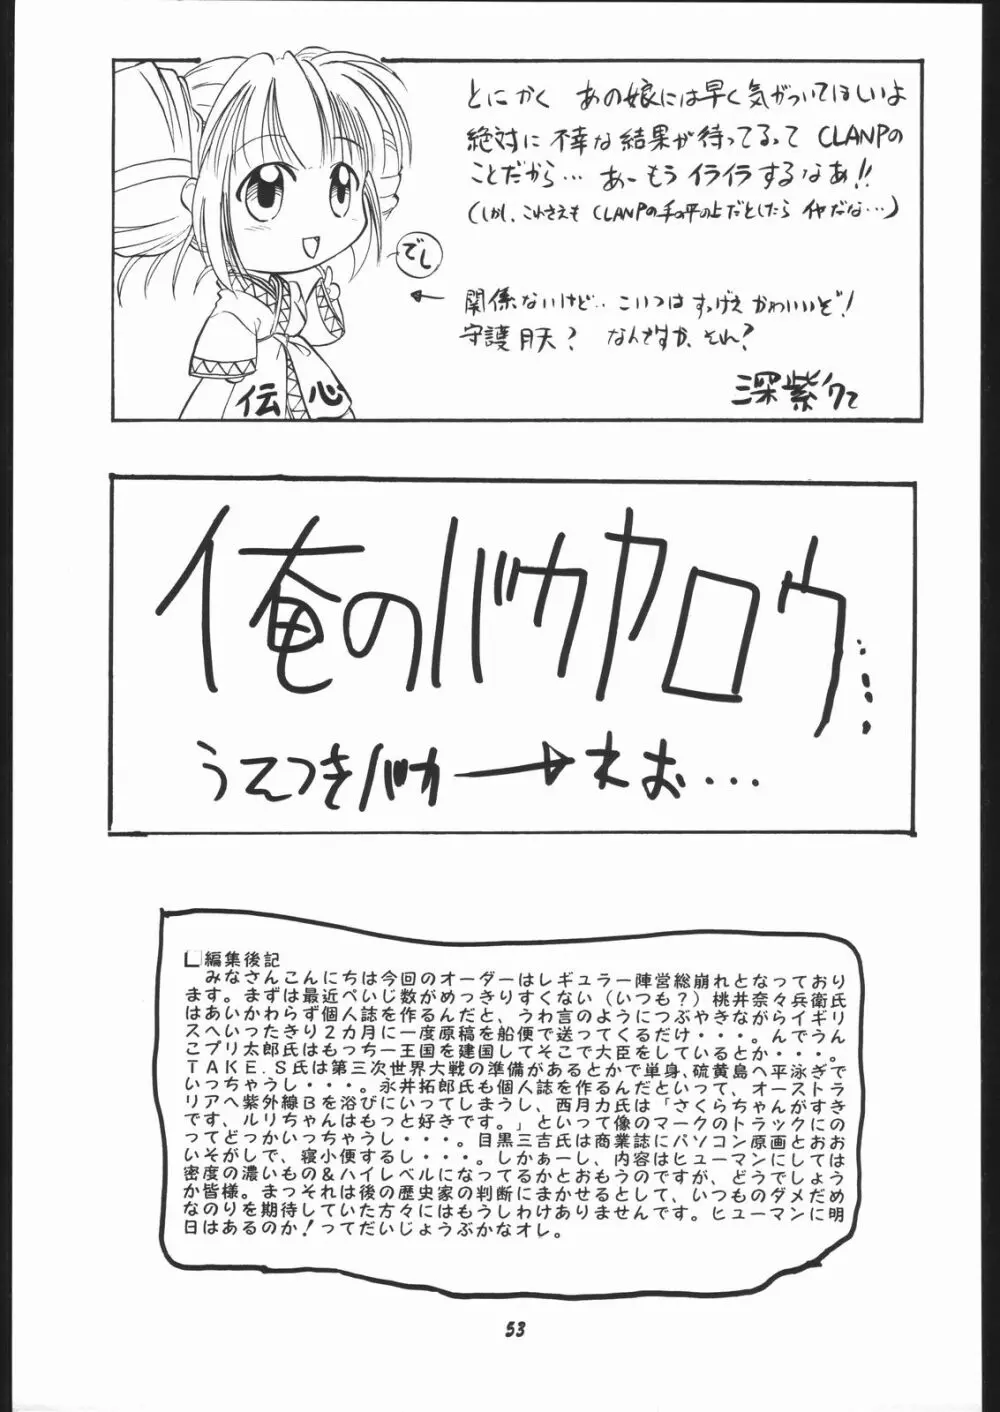 とにかく あの娘には早く気がついてほしいよ
絶対に不幸な結果が待ってるって CLANPの
ことだから… あーもう イライラするなあ!!
(しかし、これさえも CLANPの手の平の上だとしたら イヤだな…)
でし
← 関係ないけど‥ こいつは すっげえ かわいいぞ!
守護月天? なんですか、それ?
深紫
伝 心
俺のバカヤロウ…
うえつきバカ → ねお…
編集後記
みなさんこんにちは今回のオーダーはレギュラー陣営総崩れとなっており
ます。まずは最近ぺいじ数がめっきりすくない(いつも?)桃井奈々兵衛氏
はあいかわらず個人誌を作るんだと、うわ言のようにつぶやきながらイギリ
スへいったきり2カ月に一度原稿を船便で送ってくるだけ・・・。んでうん
こプリ太郎氏はもっちー王国を建国してそこで大臣をしているとか・・・。
TAKE.S氏は第三次世界大戦の準備があるとかで単身、硫黄島へ平泳ぎで
いっちゃうし・・・。永井拓郎氏も個人誌を作るんだといって、オーストラ
リアへ紫外線Bを浴びにいってしまうし、西月力氏は「さくらちゃんがすき
です、ルリちゃんはもっと好きです。」といって像のマークのトラックにの
ってどっかいっちゃうし・・・。目黒三吉氏は商業誌にパソコン原画とおお
いそがしで、寝小便するし・・・。しかぁーし、内容はヒューマンにしては
密度の濃いもの&ハイレベルになってるかとおもうのですが、どうでしょう
か皆様。まっそれは後の歴史家の判断にまかせるとして、いつものダメだめ
なのりを期待していた方々にはもうしわけありませんです。ヒューマンに明
日はあるのか!ってだいじょうぶかなオレ。
53